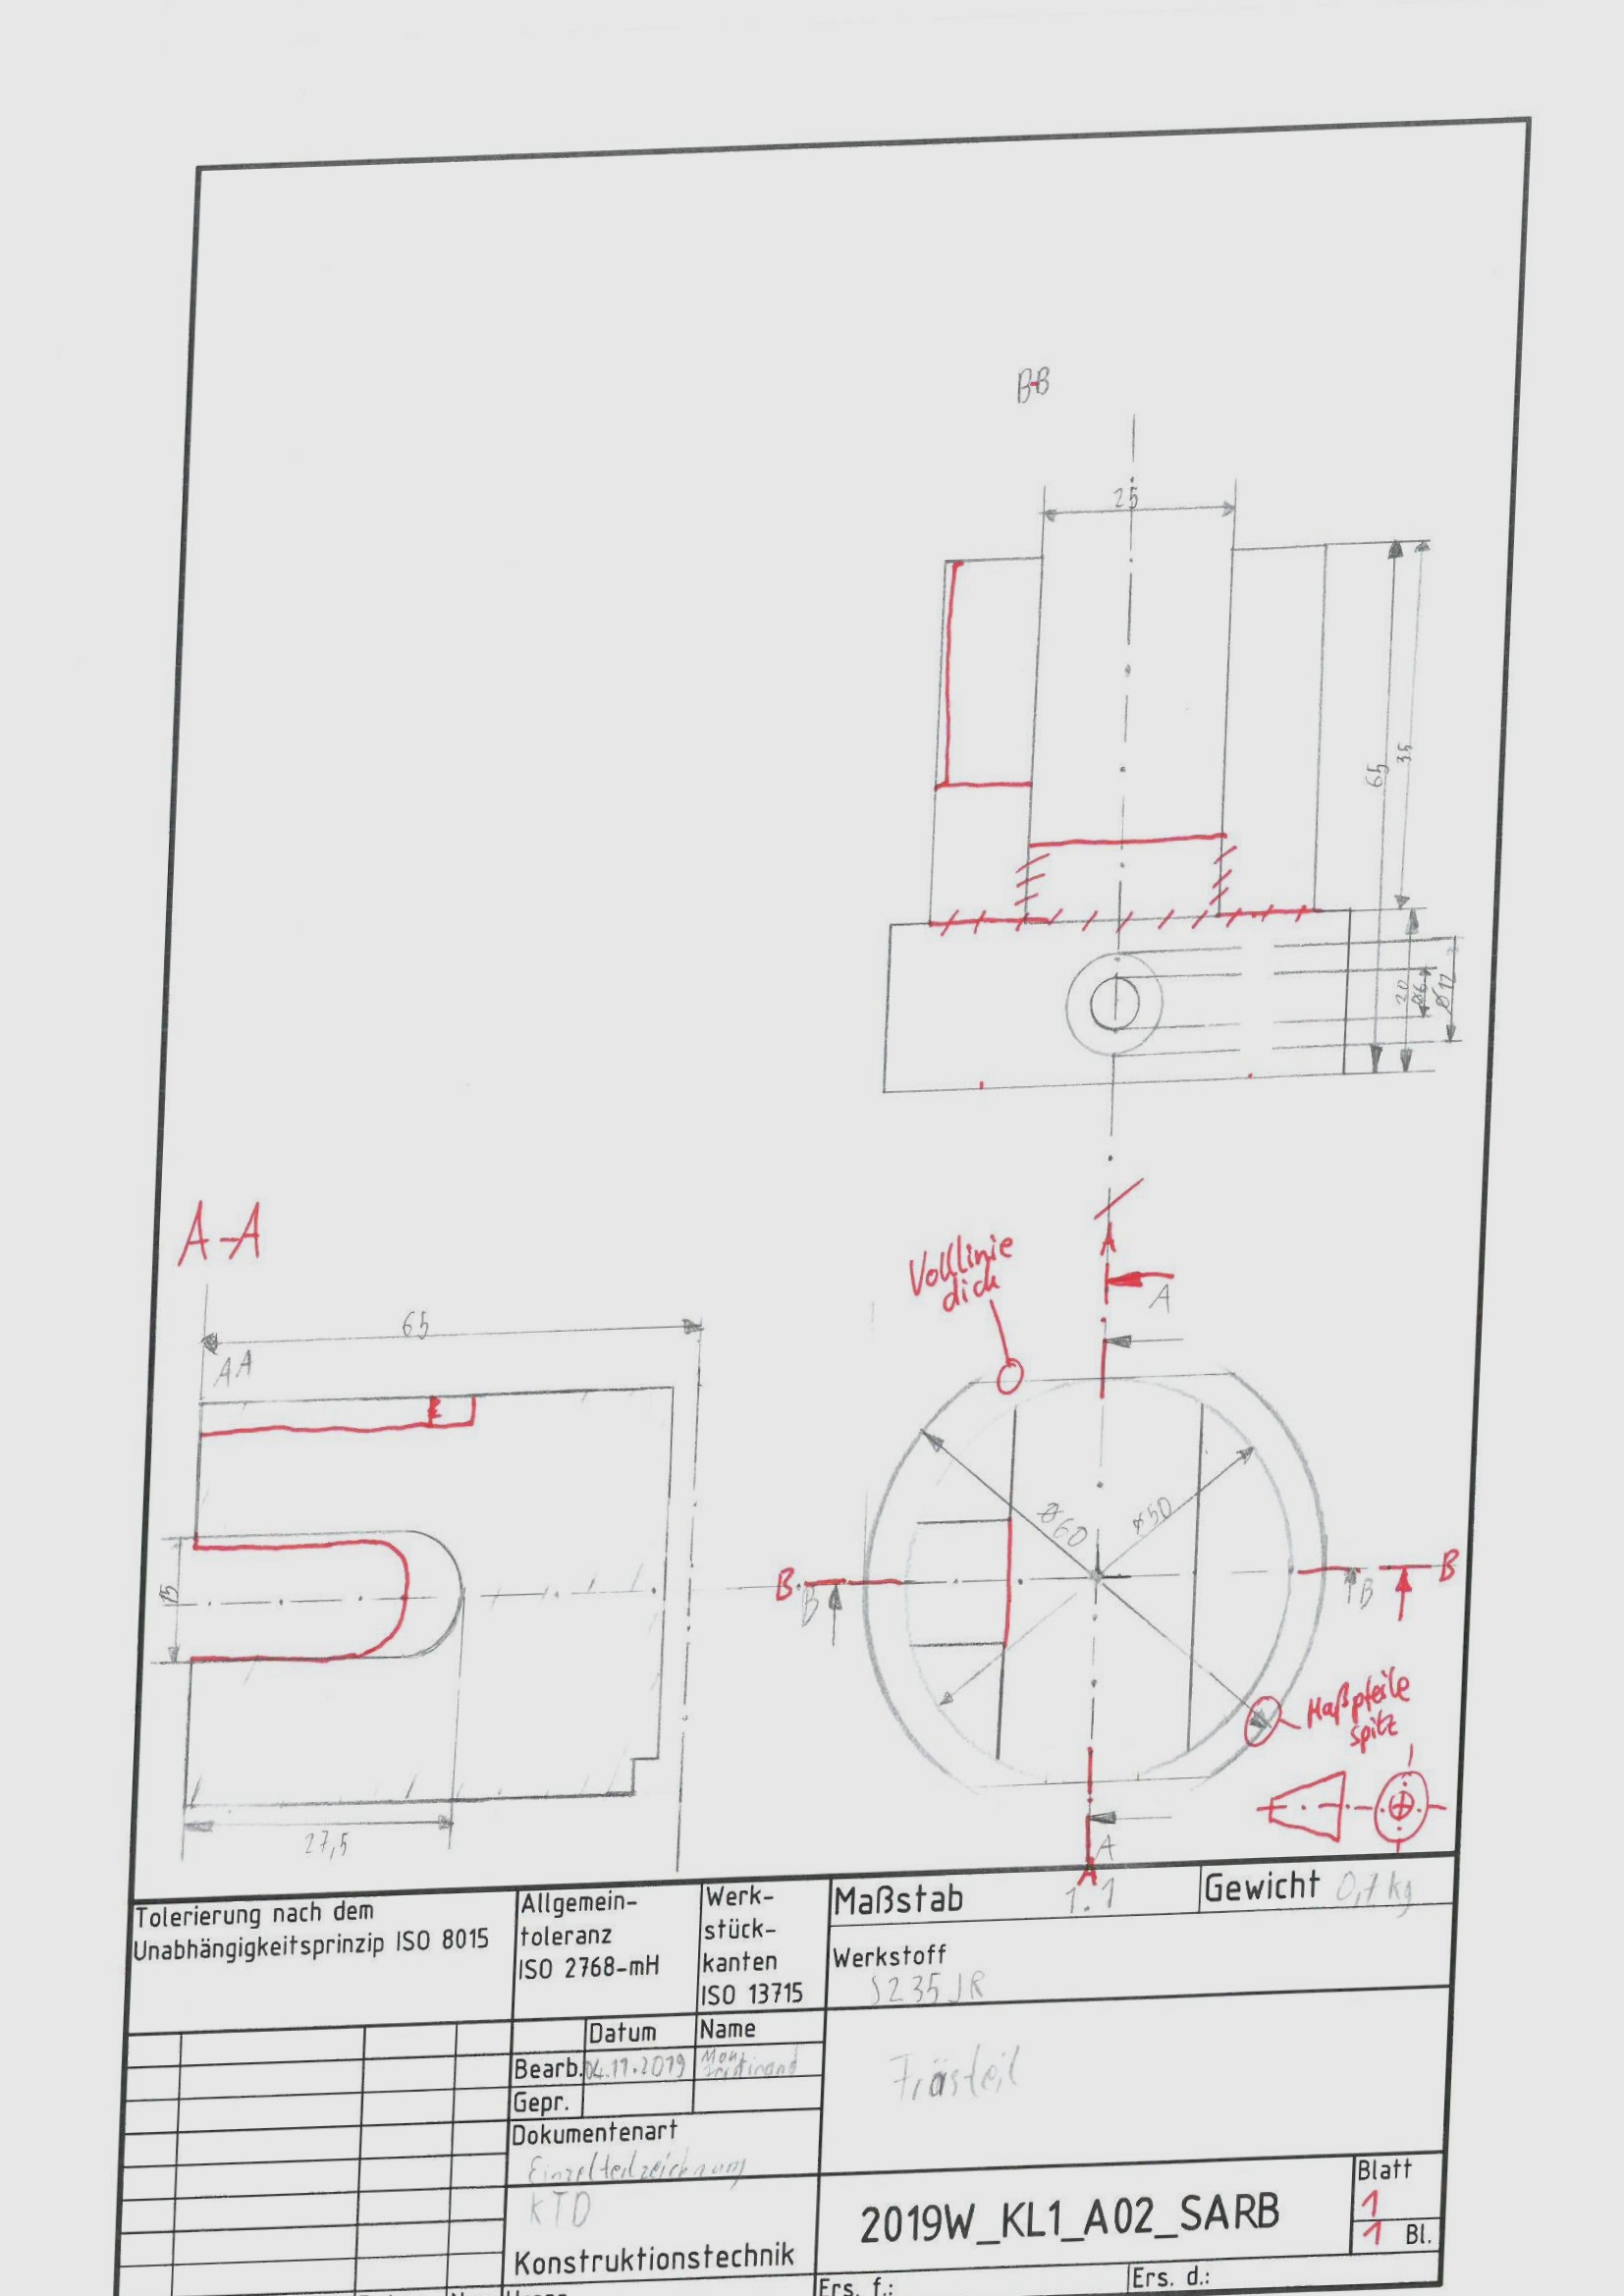 B-B
25
65
35
20
ø6
ø12
A-A
Volllinie
dick
A
A
65
AA
ø60
ø50
15
B
B
B
B
Maßpfeile
spitz
27,5
A
A
Tolerierung nach dem
Unabhängigkeitsprinzip ISO 8015
Allgemein-
toleranz
ISO 2768-mH
Werk-
stück-
kanten
ISO 13715
Maßstab 1:1
Gewicht 0,7 kg
Werkstoff
S235JR
Datum
Name
Bearb. 04.11.2019
Gepr.
Dokumentenart
Einzelteilzeichnung
KTD
Konstruktionstechnik
Frästeil
2019W_KL1_A02_SARB
Blatt
1
1 Bl.
Ers. f.:
Ers. d.: